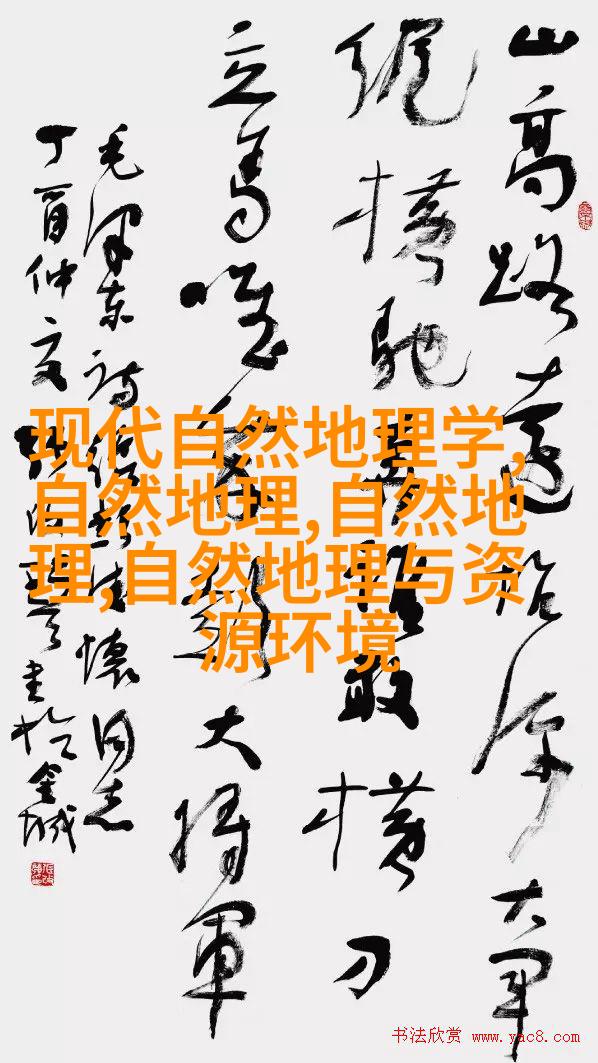 山高路遠深大军
纵横驰敢横刀
立馬唯大将軍
毛泽东詩懷同志
丁酉仲夏書於金城
现代自然地理学,
自然地理,自然地
理,自然地理与资
源环境
书法欣赏 www.yac8.com